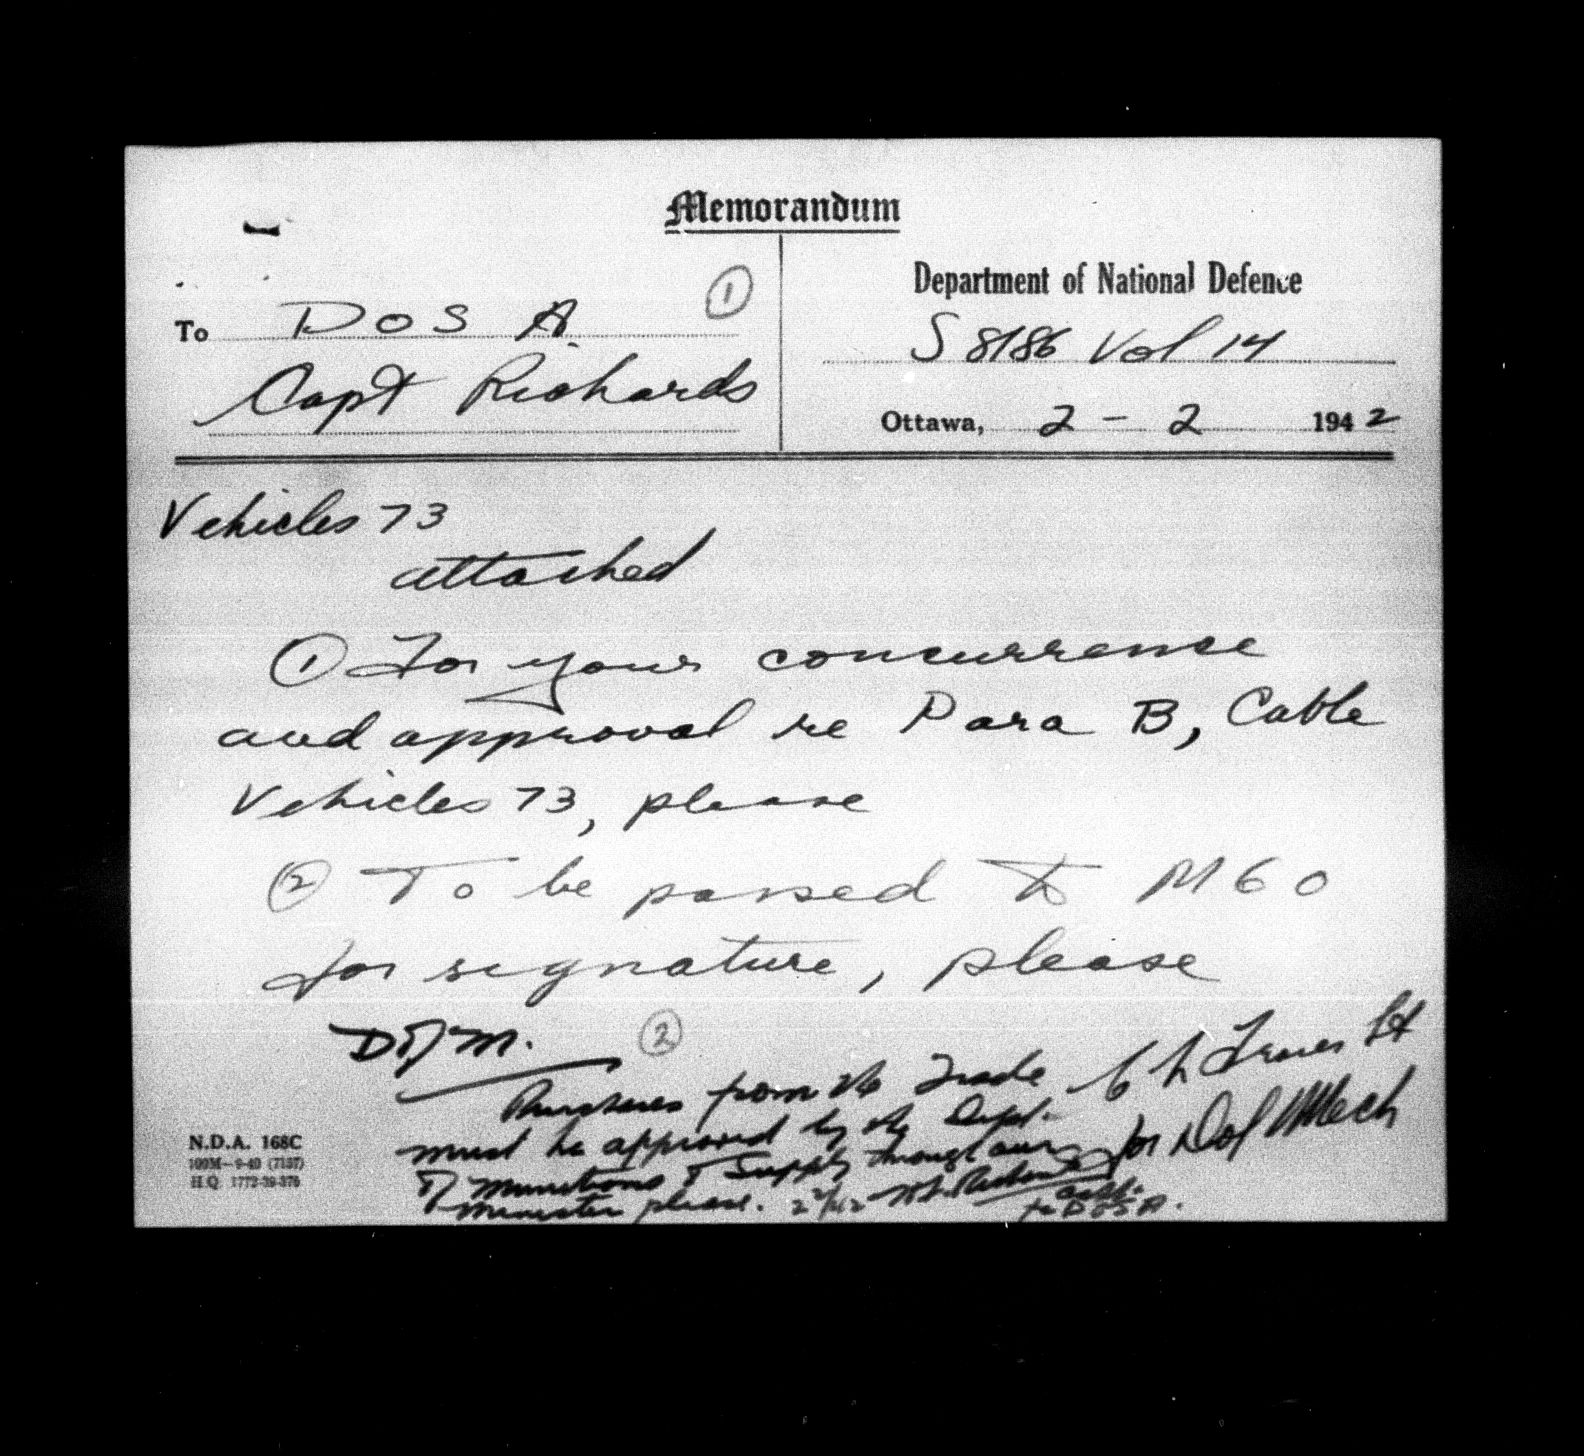 Memorandum
Department of National Defence
①
To DOS A.
Capt Richards
S 8186 Vol 14
Ottawa, 2 - 2 1942
Vehicles 73
attached
① For your concurrence
and approval re Para B, Cable
Vehicles 73, please
② To be passed to MGO
for signature, please
②
Purchases from the Trade
must be approved by the Dept.
of Munitions & Supply through our
Minister please.
to DOSA.
Lt
for DofMMech
N.D.A. 168C
100M—9-40 (7137)
H.Q. 1772-39-376